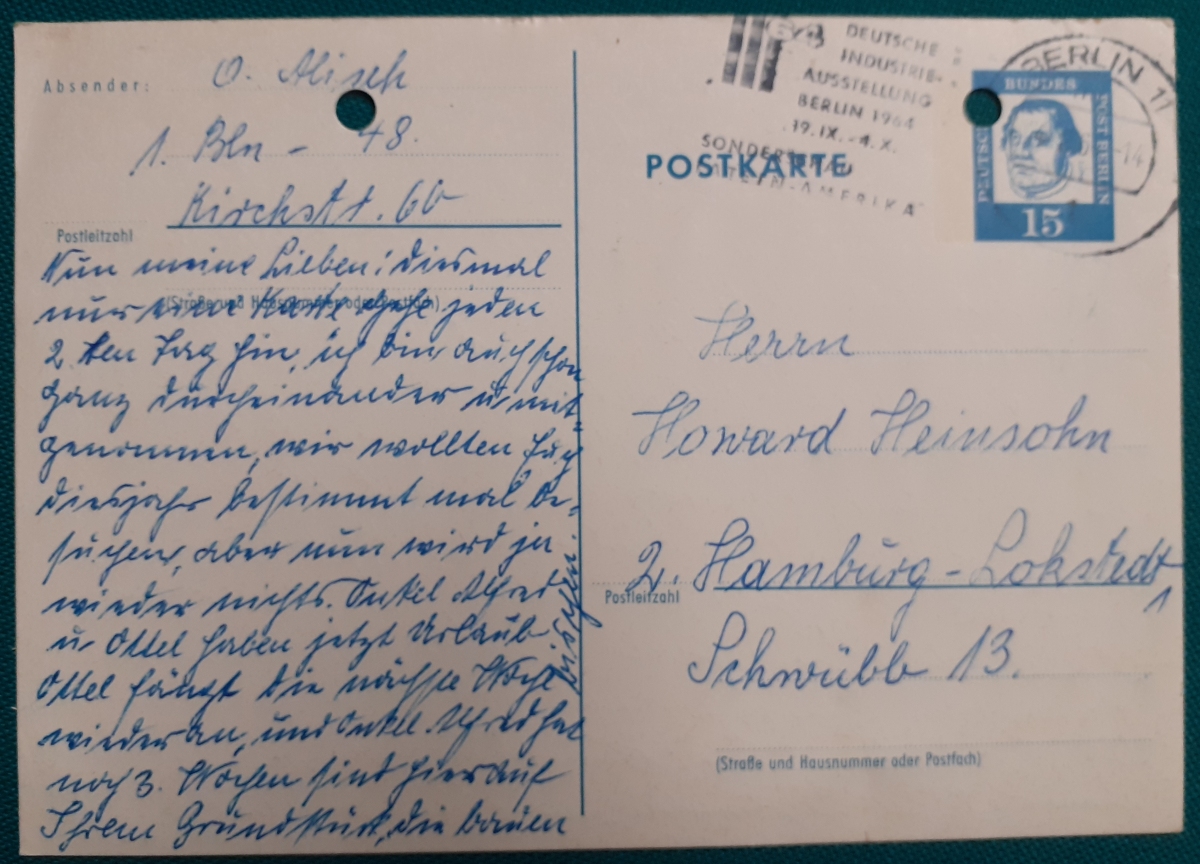 Absender: O. Alisch
1. Bln - 48.
Kirchstr. 66
Postleitzahl
(Straße und Hausnummer oder Postfach)
Nun meine Lieben! diesmal
nur eine Karte gehe jeden
2 ten Tag hin, ich bin auch schon
ganz durcheinander u. mit-
genommen, wir wollten Euch
diesjahr bestimmt mal be-
suchen, aber nun wird ja
wieder nichts. Onkel Alfred
u. Ottel haben jetzt Urlaub
Ottel fängt die nächste Woche
wieder an, und Onkel Alfred hat
noch 3. Wochen sind hier auf
Ihrem Grundstück, die bauen
bischen.
DEUTSCHE
INDUSTRIE-
AUSSTELLUNG
BERLIN 1964
19.IX.-4.X.
SONDERSCHAU
LATEIN-AMERIKA
BERLIN 11
-14
POSTKARTE
DEUTSCHE
BUNDES
POST BERLIN
15
Herrn
Howard Heinsohn
2. Hamburg-Lokstedt 1
Postleitzahl
Schwübb 13.
(Straße und Hausnummer oder Postfach)